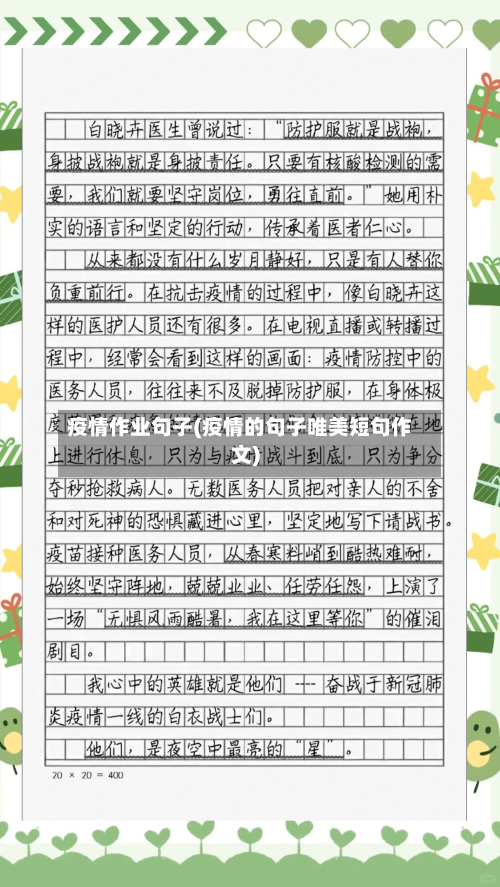 白晓卉医生曾说过：“防护服就是战袍，
身披战袍就是身披责任。只要有核酸检测的需
要，我们就要坚守岗位，勇往直前。”她用朴
实的语言和坚定的行动，传承着医者仁心。
从来都没有什么岁月静好，只是有人替你
负重前行。在抗击疫情的过程中，像白晓卉这
样的医护人员还有很多。在电视直播或转播过
程中，经常会看到这样的画面：疫情防控中的
医务人员，往往来不及脱掉防护服，在身体极
疫情作业句子(疫情的句子唯美短句作
文)
上进行休息，只为与 战斗到底，只为争分
夺秒抢救病人。无数医务人员把对亲人的不舍
和对死神的恐惧藏进心里，坚定地写下请战书。
疫苗接种医务人员，从春寒料峭到酷热难耐，
始终坚守阵地，兢兢业业、任劳任怨，上演了
一场“无惧风雨酷暑，我在这里等你”的催泪
剧目。
我心中的英雄就是他们 ---- 奋战于新冠肺
炎疫情一线的白衣战士们。
他们，是夜空中最亮的“星”。
20 × 20 = 400